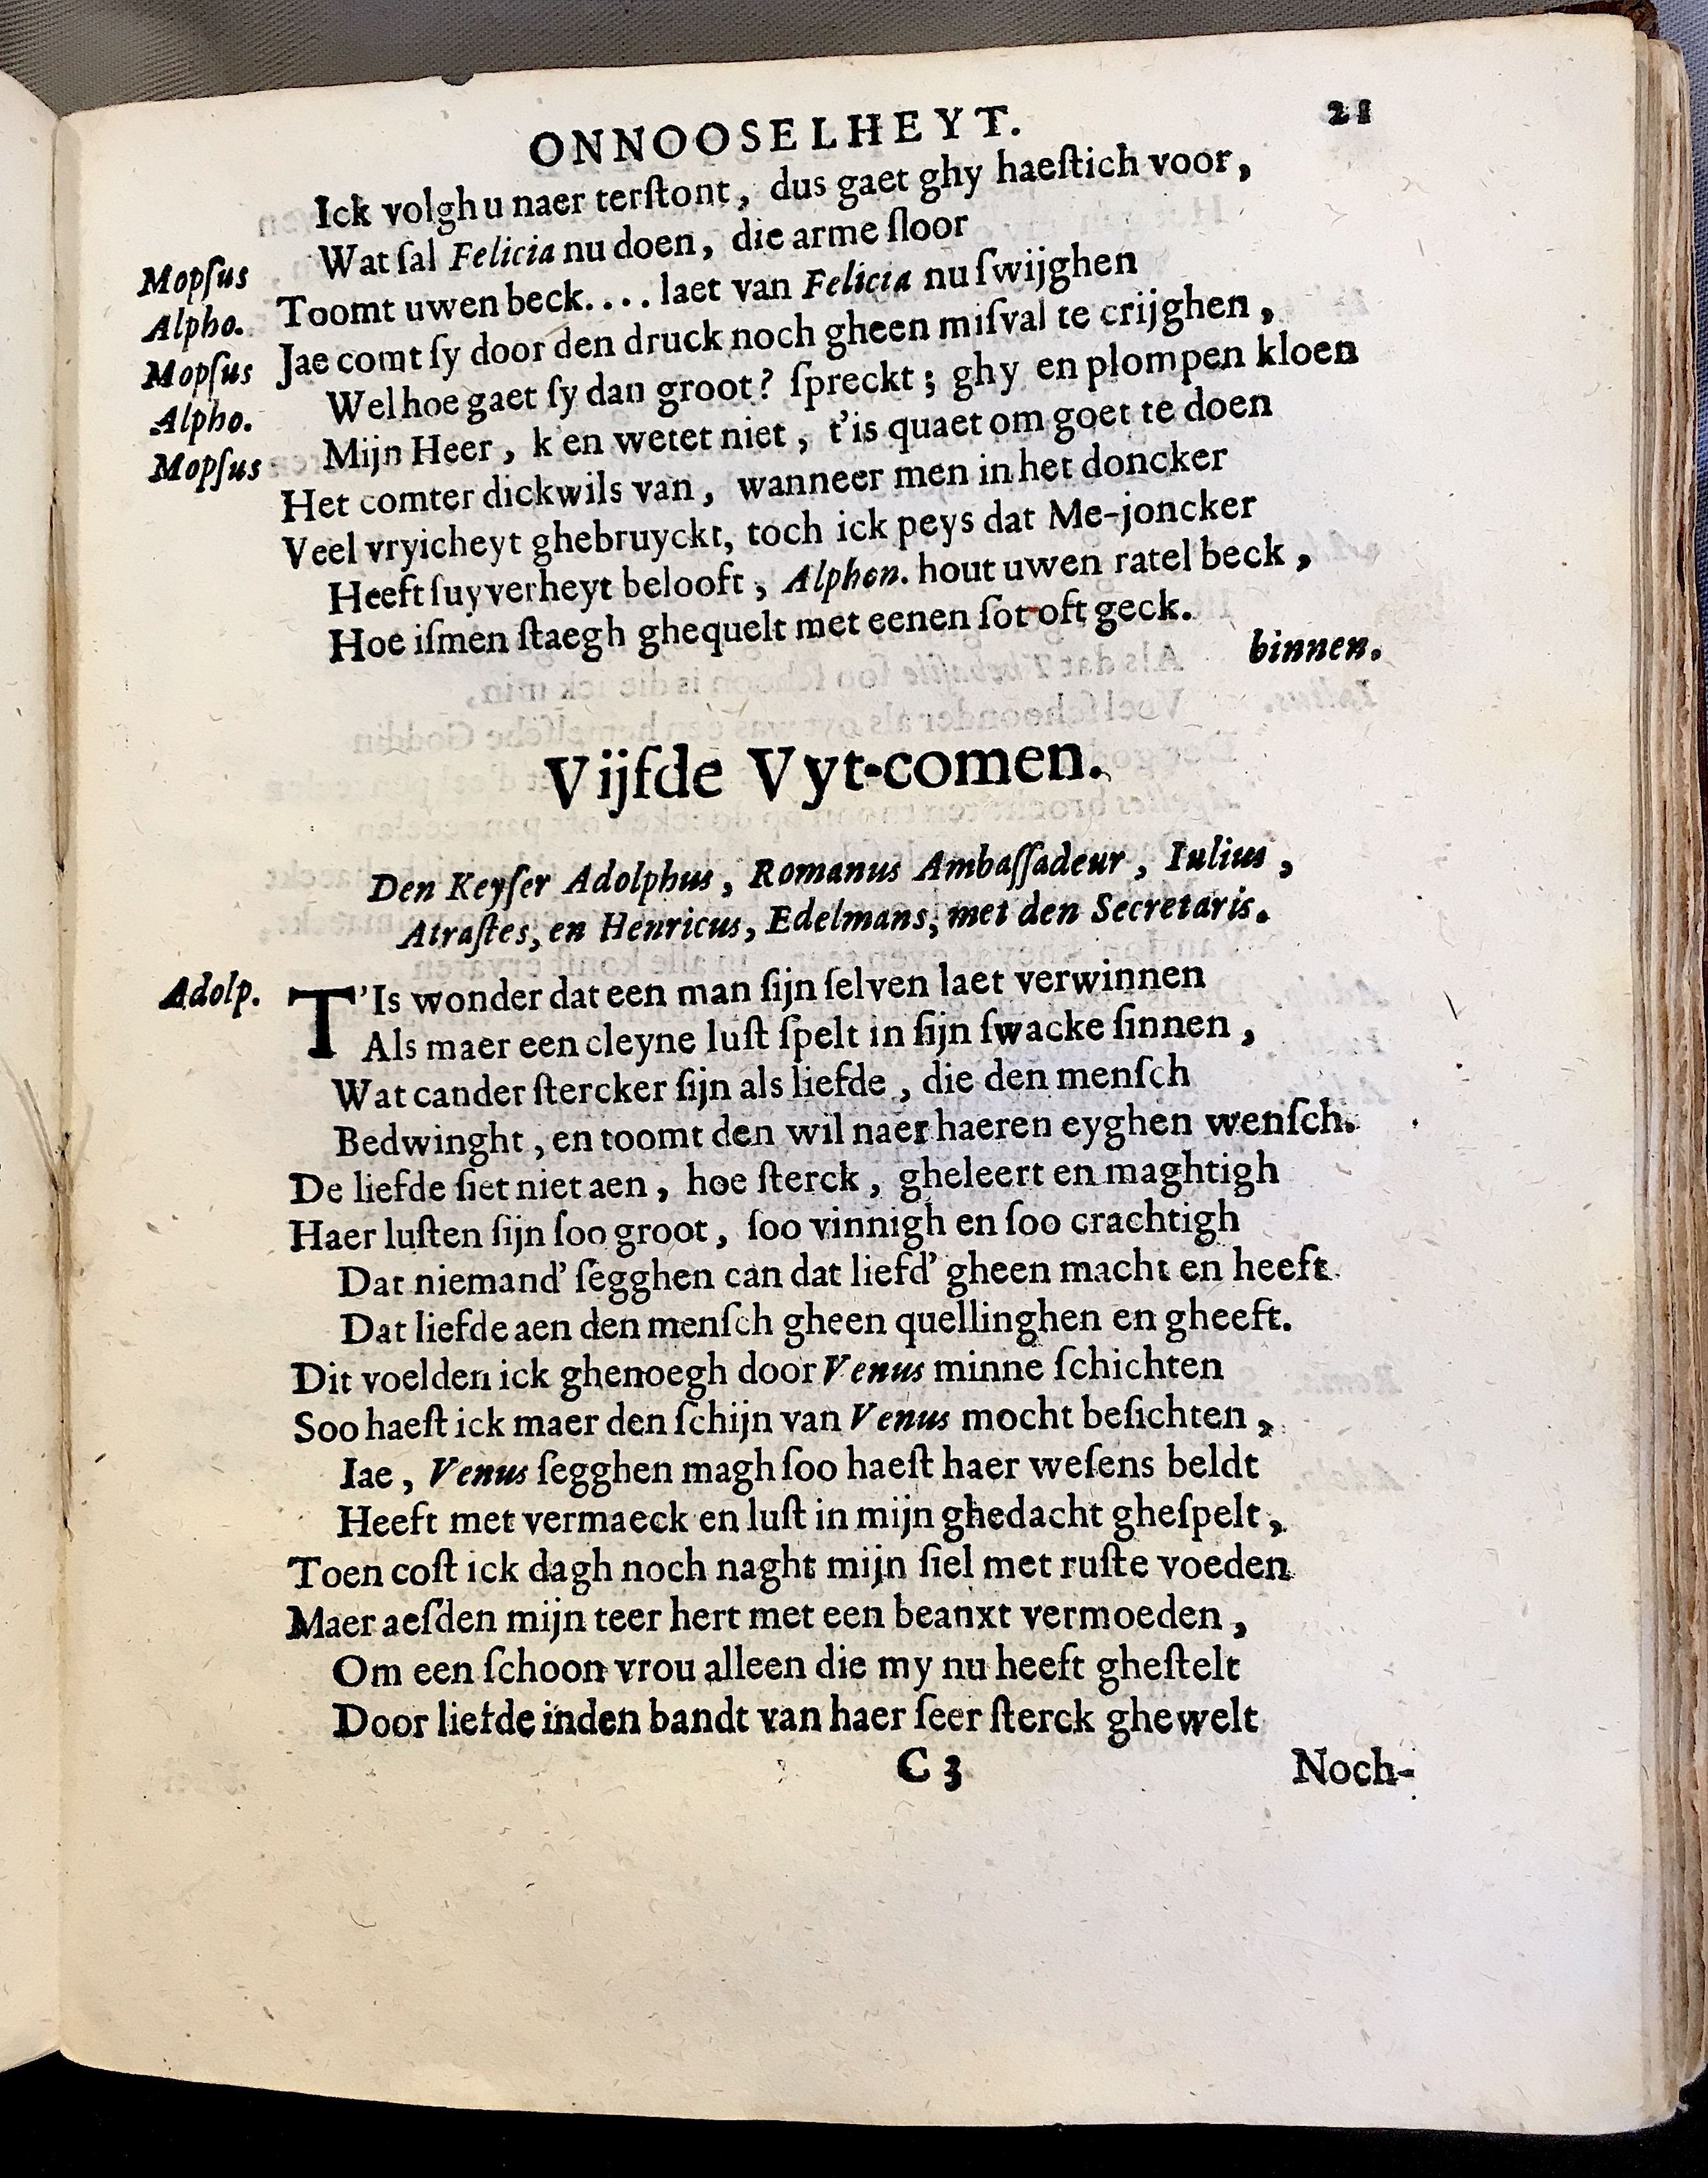 ONNOOSELHEYT. 21
Ick volgh u naer terſtont, dus gaet ghy haeſtich voor,
Mopſus Wat ſal Felicia nu doen, die arme ſloor
Alpho. Toomt uwen beck.... laet van Felicia nu ſwijghen
Mopſus Jae comt ſy door den druck noch gheen miſval te crijghen,
Alpho. Wel hoe gaet ſy dan groot? ſpreckt; ghy en plompen kloen
Mopſus Mijn Heer, k'en wetet niet, t'is quaet om goet te doen
Het comter dickwils van, wanneer men in het doncker
Veel vryicheyt ghebruyckt, toch ick peys dat Me-joncker
Heeft ſuyverheyt belooft, Alphon. hout uwen ratel beck,
Hoe iſmen ſtaegh ghequelt met eenen ſot oft geck.
binnen.
Vijfde Vyt-comen.
Den Keyſer Adolphus, Romanus Ambaſſadeur, Iulius,
Atraſtes, en Henricus, Edelmans, met den Secretaris.
Adolp. T'Is wonder dat een man ſijn ſelven laet verwinnen
Als maer een cleyne luſt ſpelt in ſijn ſwacke ſinnen,
Wat cander ſtercker ſijn als liefde, die den menſch
Bedwinght, en toomt den wil naer haeren eyghen wenſch.
De liefde ſiet niet aen, hoe ſterck, gheleert en maghtigh
Haer luſten ſijn ſoo groot, ſoo vinnigh en ſoo crachtigh
Dat niemand' ſegghen can dat liefd' gheen macht en heeft
Dat liefde aen den menſch gheen quellinghen en gheeft.
Dit voelden ick ghenoegh door Venus minne ſchichten
Soo haeſt ick maer den ſchijn van Venus mocht beſichten,
Iae, Venus ſegghen magh ſoo haeſt haer weſens beldt
Heeft met vermaeck en luſt in mijn ghedacht gheſpelt,
Toen coſt ick dagh noch naght mijn ſiel met ruſte voeden
Maer aeſden mijn teer hert met een beanxt vermoeden,
Om een ſchoon vrou alleen die my nu heeft gheſtelt
Door liefde inden bandt van haer ſeer ſterck ghewelt
C 3 Noch-